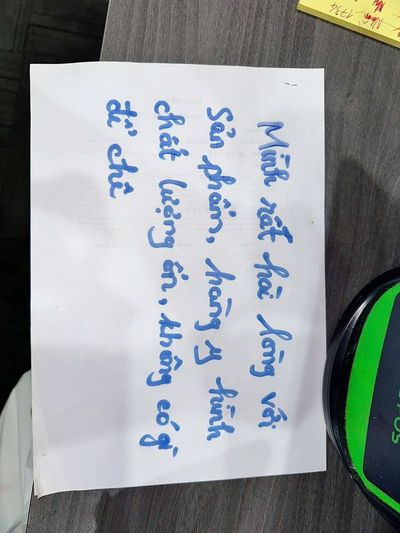 Mình rất hài lòng với
Sản phẩm, hàng y hình
chất lượng ổn, không có gì
để chê